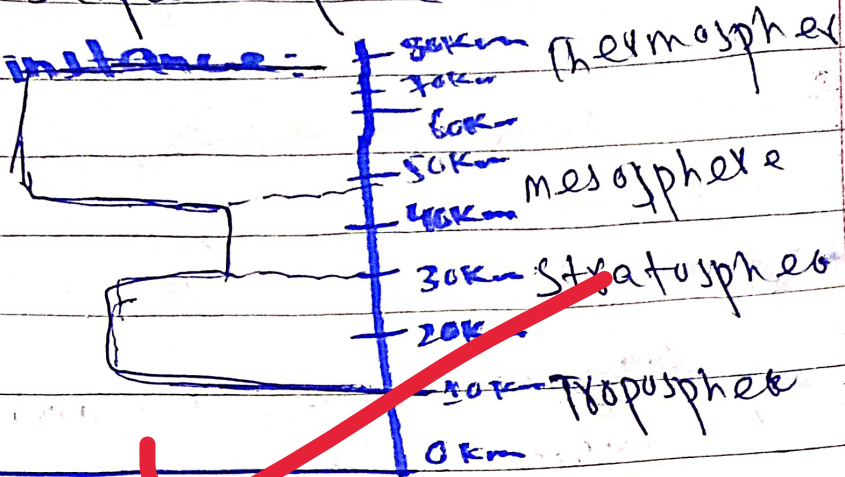 instance:
80Km Thermospher
70Km
60Km
50Km
mesosphere
40Km
30Km Stratospheo
20K
10Km Tropospheo
0 Km